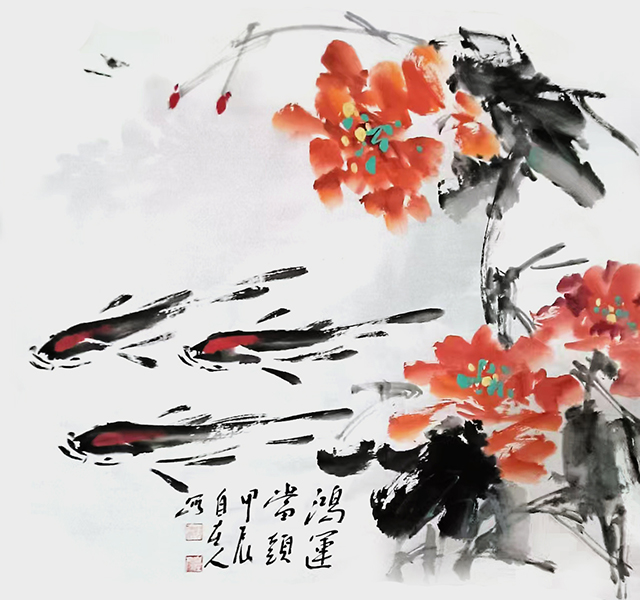 鴻運
當頭
甲辰
自在人
写